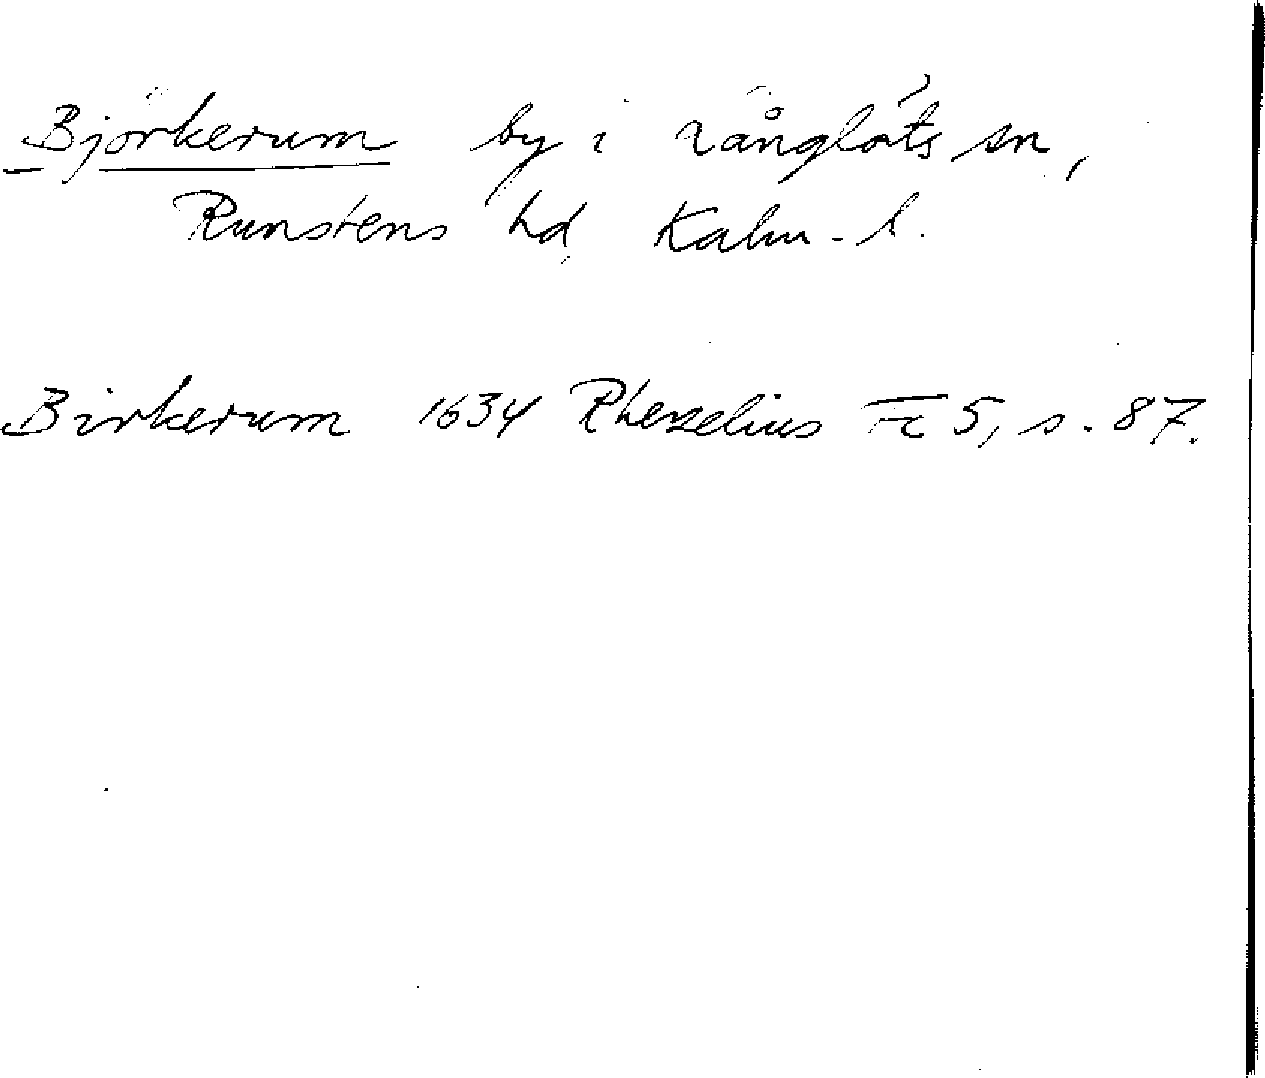 Björkerum by i Långlöts sn,
Runstens hd Kalm. l.
Birkerum 1634 Rhezelius Fc 5, s. 87.